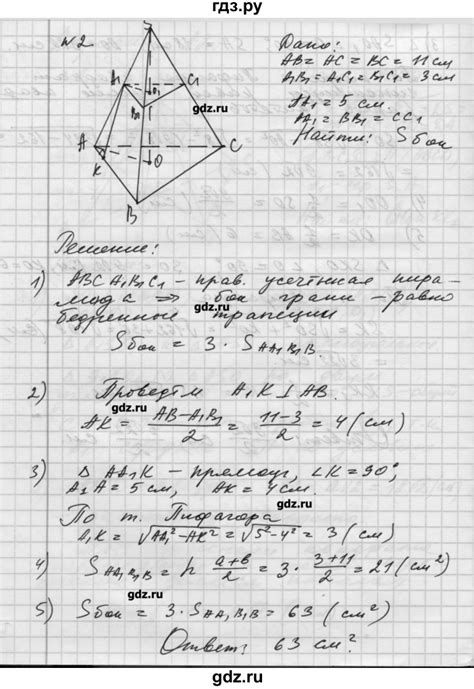 гдз.ру
№2
S
A₁
O₁
C₁
B₁
A
K
O
C
B
Дано:
AB = AC = BC = 11 см
A₁B₁ = A₁C₁ = B₁C₁ = 3 см
AA₁ = 5 см.
AA₁ = BB₁ = CC₁
Найти: Sбок
gdz.ru
gdz.ru
Решение:
1) ABCA₁B₁C₁ – прав. усечённая пира-
мода ⇒ бок грани – равно
бедренные трапеции
gdz.ru
Sбок = 3 · SAA₁B₁B.
2) Проведём A₁K ⊥ AB.
gdz.ru
AK = (AB - A₁B₁)/2 = (11-3)/2 = 4 (см)
3) Δ AA₁K – прямоуг, ∠K = 90°,
A₁A = 5 см, AK = 4 см.
gdz.ru
По т. Пифагора
A₁K = √(AA₁² - AK²) = √(5² - 4²) = 3 (см)
4) SAA₁B₁B = h (a+b)/2 = 3 · (3+11)/2 = 21 (см²)
gdz.ru
5) Sбок = 3 · SAA₁B₁B = 63 (см²)
Ответ: 63 см².
gdz.ru
gdz.ru